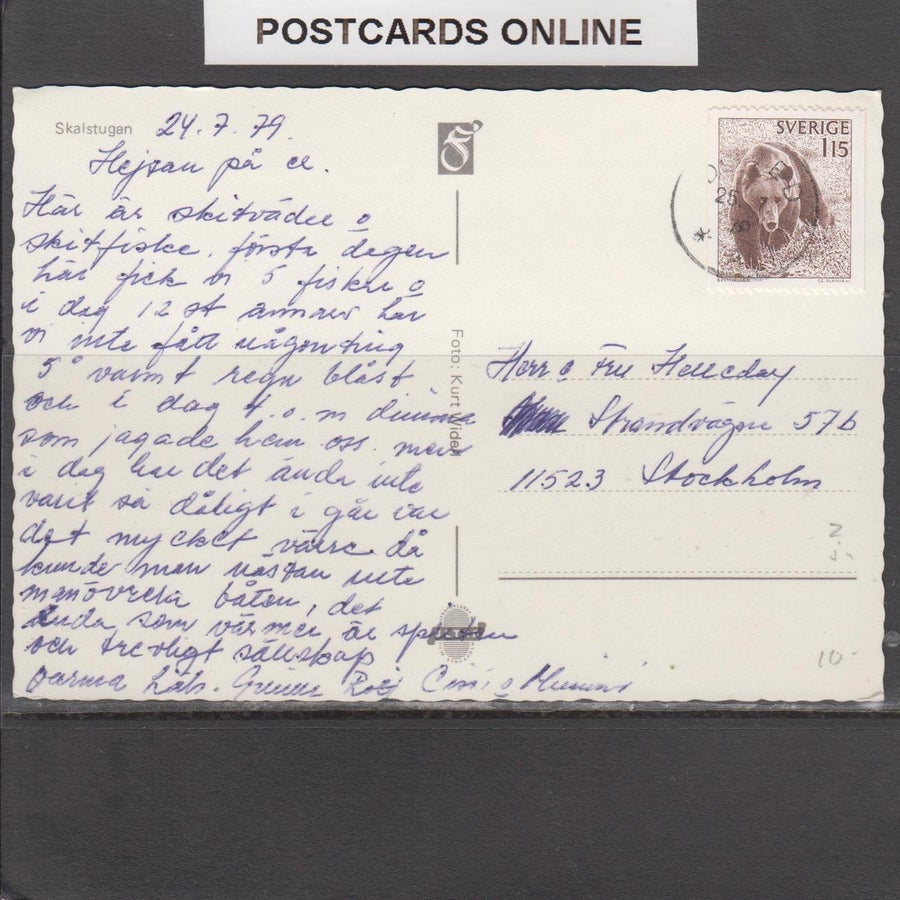 POSTCARDS ONLINE
Skalstugan 24.7.79.
Hejsan på er.
Här är skitväder o
skitfiske. första dagen
här fick vi 5 fiskar o
i dag 12 st annars har
vi inte fått någonting
5° varmt regn blåst
och i dag t.o.m dimma
som jagade hem oss. men
i dag har det ändå inte
varit så dåligt i går var
det mycket värre. då
kunde man nästan inte
manövrera båten, det
enda som värmer är spriten
och trevligt sällskap
Varma häls. Roij Cissi o
SVERIGE
115
25 7
Foto: Kurt Widell
Herr o Fru Helleday
Strandvägen 57b
11523 Stockholm
10-